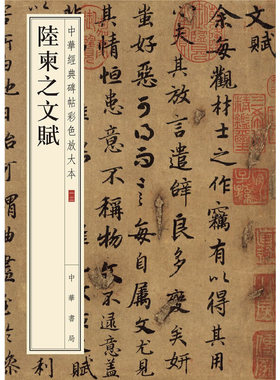 中華經典碑帖彩色放大本
陸柬之文賦
中華書局
文賦
余每觀材士之作竊有以得其用
心夫其放言遣辭良多變矣妍
蚩好惡可得而言每自屬文尤見
其情恒患意不稱物文不逮意蓋